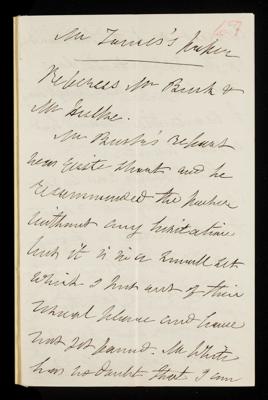 67
Mr Tomes's paper
Referees Mr Busk &
Mr Hulke.
Mr Busk's report
was quite short and he
recommended the paper
without any hesitation
but it is in a small set
which I put out of their
usual place and have
not yet found. Mr White
has no doubt that I am